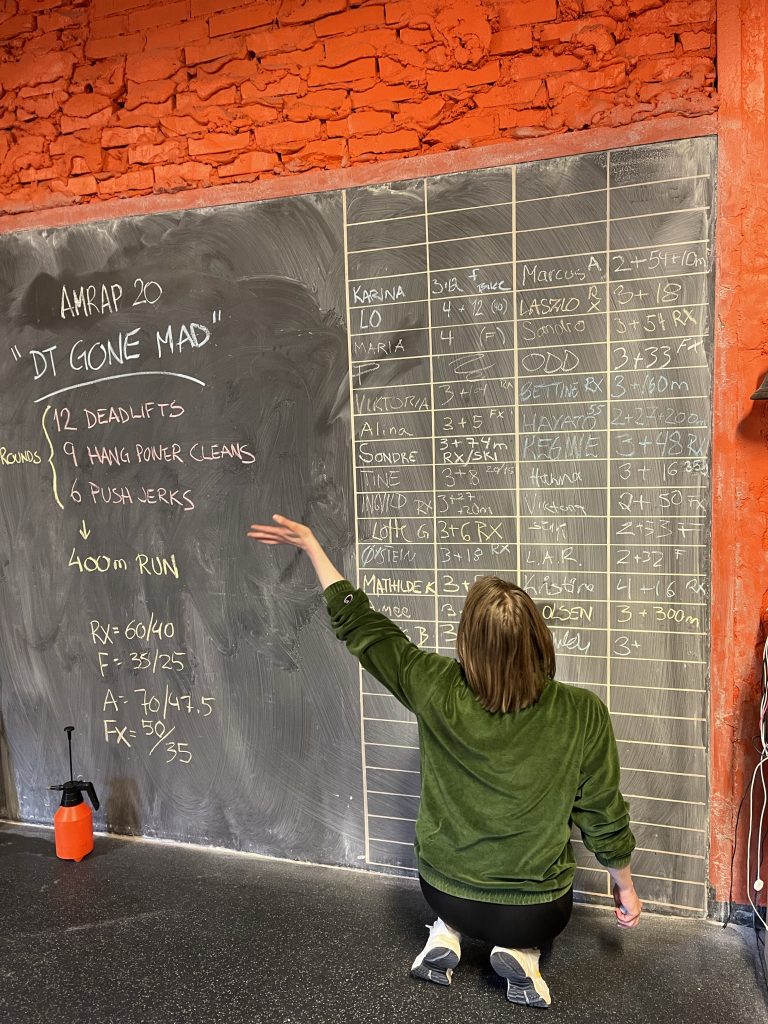 AMRAP 20
"DT GONE MAD"
12 DEADLIFTS
ROUNDS 9 HANG POWER CLEANS
6 PUSH JERKS
↓
400m RUN
RX = 60/40
F = 35/25
A = 70/47.5
FX = 50/35
KARINA
LO 4 + 12
MARIA 4 (F)
P
VIKTORIA
Alina 3+5 FX
SONDRE 3+74m RX/SKI
TINE 3+8
INGVILD RX 3+27+20m
Lotte G 3+6 RX
ØYSTEIN 3+18 RX
MATHILDE K 3+
B 3
Marcus A 2+54+10m
LASZLO RX 3+18
Sandro 3+54 RX
ODD 3+33 FX
BETTINE RX 3+160m
HAYATO 2+27+200m
REGINE 3+48 RX
Hanna 3+16
Viktoria 2+50 F
2+33 F
L.A.R. 2+32 F
Kristine 4+16 RX
OLSEN 3+300m
3+